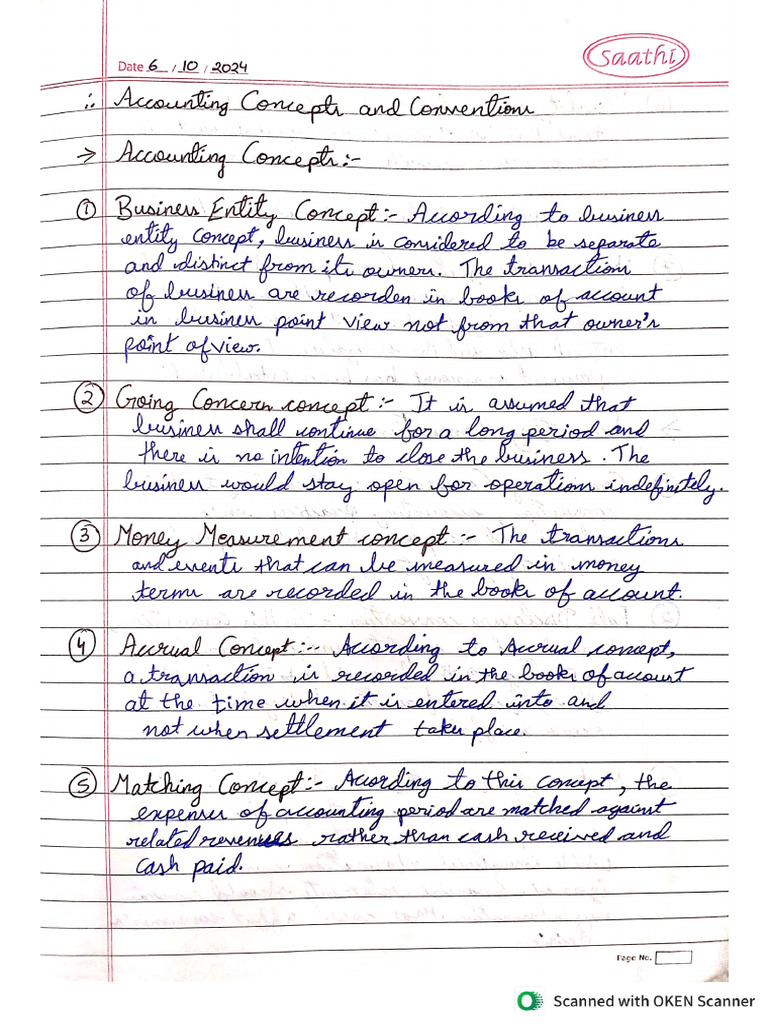 Date 6 / 10 / 2024
Saathi
∴ Accounting Concepts and Conventions
→ Accounting Concepts:-
① Business Entity Concept:- According to business
entity concept, business is considered to be separate
and distinct from its owners. The transactions
of business are recorden in books of account
in business point view not from that owner's
point of view.
② Going Concern concept:- It is assumed that
business shall continue for a long period and
there is no intention to close the business. The
business would stay open for operations indefinitely.
③ Money Measurement concept:- The transactions
and events that can be measured in money
terms are recorded in the books of account.
④ Accrual Concept:-- According to Accrual concept,
a transaction is recorded in the books of account
at the time when it is entered into and
not when settlement takes place.
⑤ Matching Concept:- According to this concept, the
expenses of accounting period are matched against
related revenues rather than cash received and
cash paid.
Page No.
Scanned with OKEN Scanner